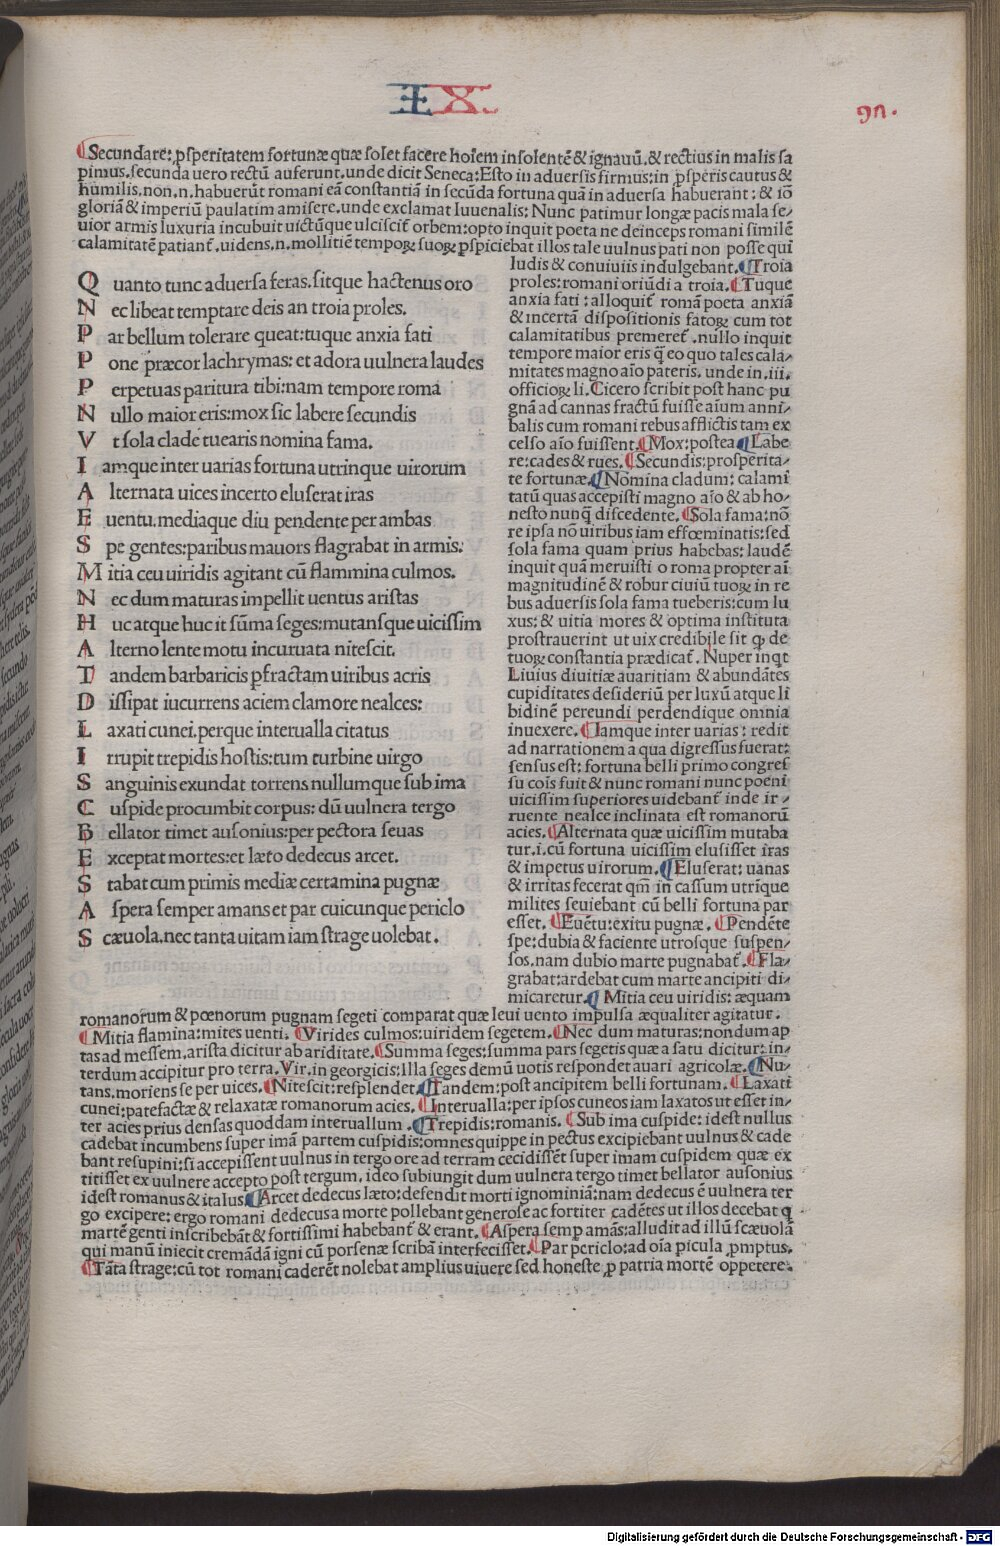 IX.
9n.
¶Secundare: ꝑsperitatem fortunæ quæ solet facere hoı̄em insolentē & ignauū. & rectius in malis sa
pimus. secunda uero rectū auferunt. unde dicit Seneca: Esto in aduersis firmus: in ꝓsperis cautus &
humilis. non .n. habuerūt romani eā constantiā in secūda fortuna quā in aduersa habuerant: & iō
gloriā & imperiū paulatim amisere. unde exclamat Iuuenalis: Nunc patimur longæ pacis mala se/
uior armis luxuria incubuit uictūque ulciscit̄ orbem: opto inquit poeta ne deinceps romani similē
calamitatē patiant̄. uidens .n. mollitiē tempoꝝ suoꝝ ꝑspiciebat illos tale uulnus pati non posse qui
Quanto tunc aduersa feras. sitque hactenus oro
Nec libeat temptare deis an troia proles.
Par bellum tolerare queat: tuque anxia fati
Pone præcor lachrymas: et adora uulnera laudes
Perpetuas paritura tibi: nam tempore roma
Nullo maior eris: mox sic labere secundis
Vt sola clade tuearis nomina fama.
Iamque inter uarias fortuna utrinque uirorum
Alternata uices incerto eluserat iras
Euentu. mediaque diu pendente per ambas
Spe gentes: paribus mauors flagrabat in armis:
Mitia ceu uiridis agitant cū flammina culmos.
Nec dum maturas impellit uentus aristas
Huc atque huc it sūma seges: mutansque uicissim
Alterno lente motu incuruata nitescit.
Tandem barbaricis ꝑfractam uiribus acris
Dissipat iucurrens aciem clamore nealces:
Laxati cunei. perque interualla citatus
Irrupit trepidis hostis: tum turbine uirgo
Sanguinis exundat torrens nullumque sub ima
Cuspide procumbit corpus: dū uulnera tergo
Bellator timet ausonius: per pectora seuas
Exceptat mortes: et læto dedecus arcet.
Stabat cum primis mediæ certamina pugnæ
Aspera semper amans et par cuicunque periclo
Scæuola. nec tanta uitam iam strage uolebat.
ludis & conuiuiis indulgebant. ¶Troia
proles: romani oriūdi a troia. ¶Tuque
anxia fati: alloquit̄ romā poeta anxiā
& incertā dispositionis fatoꝝ cum tot
calamitatibus premeret̄. nullo inquit
tempore maior eris q̄ eo quo tales cala/
mitates magno aīo pateris. unde in .iii.
officioꝝ li. Cicero scribit post hanc pu
gnā ad cannas fractū fuisse aīum anni/
balis cum romani rebus afflictis tam ex
celso aīo fuissent. ¶Mox: postea ¶Labe
re: cades & rues. ¶Secundis: prosperita/
te fortunæ. ¶Nomina cladum: calami
tatū quas accepisti magno aīo & ab ho/
nesto nunq̄ discedente. ¶Sola fama: nō
re ipsa nō uiribus iam effœminatis: sed
sola fama quam prius habebas: laudē
inquit quā meruisti o roma propter aī
magnitudinē & robur ciuiū tuoꝝ in re
bus aduersis sola fama tueberis: cum lu
xus: & uitia mores & optima instituta
prostrauerint ut uix credibile sit ꝙ de
tuoꝝ constantia prædicat̄. Nuper inqt
Liuius diuitiæ auaritiam & abundātes
cupiditates desideriū per luxū atque li
bidinē pereundi perdendique omnia
inuexere. ¶Iamque inter uarias: redit
ad narrationem a qua digressus fuerat:
sensus est: fortuna belli primo congres
su coīs fuit & nunc romani nunc poeni
uicissim superiores uidebant̄ inde ir/
ruente nealce inclinata est romanorū
acies. ¶Alternata quæ uicissim mutaba
tur. i. cū fortuna uicissim elusisset iras
& impetus uirorum. ¶Eluserat: uanas
& irritas fecerat qm̄ in cassum utrique
milites seuiebant cū belli fortuna par
esset. ¶Euētu: exitu pugnæ. ¶Pendēte
spe: dubia & faciente utrosque suspen/
sos. nam dubio marte pugnabat̄. ¶Fla/
grabat: ardebat cum marte ancipiti di/
micaretur. ¶Mitia ceu uiridis: æquam
romanorum & pœnorum pugnam segeti comparat quæ leui uento impulsa æqualiter agitatur.
¶Mitia flamina: mites uenti. ¶Virides culmos: uiridem segetem. ¶Nec dum maturas: nondum ap
tas ad messem. arista dicitur ab ariditate. ¶Summa seges: summa pars segetis quæ a satu dicitur: in/
terdum accipitur pro terra. Vir. in georgicis: Illa seges demū uotis respondet auari agricolæ. ¶Nu/
tans. moriens se per uices. ¶Nitescit: resplendet. ¶Tandem: post ancipitem belli fortunam. ¶Laxati
cunei: patefactæ & relaxatæ romanorum acies. ¶Interualla: per ipsos cuneos iam laxatos ut esset in/
ter acies prius densas quoddam interuallum. ¶Trepidis: romanis. ¶Sub ima cuspide: idest nullus
cadebat incumbens super imā partem cuspidis: omnes quippe in pectus excipiebant uulnus & cade
bant resupini: si accepissent uulnus in tergo ore ad terram cecidissēt super imam cuspidem quæ ex
titisset ex uulnere accepto post tergum. ideo subiungit dum uulnera tergo timet bellator ausonius
idest romanus & italus ¶Arcet dedecus læto: defendit morti ignominiā: nam dedecus ē uulnera ter
go excipere: ergo romani dedecus a morte pollebant generose ac fortiter cadētes ut illos decebat q
martē genti inscribebāt & fortissimi habebant̄ & erant. ¶Aspera semp amās: alludit ad illū scæuolā
qui manū iniecit cremādā igni cū porsenæ scribā interfecisset. ¶Par periclo: ad oīa picula ꝓmptus.
¶Tāta strage: cū tot romani caderēt nolebat amplius uiuere sed honeste ꝓ patria mortē oppetere.
Digitalisierung gefördert durch die Deutsche Forschungsgemeinschaft - DFG